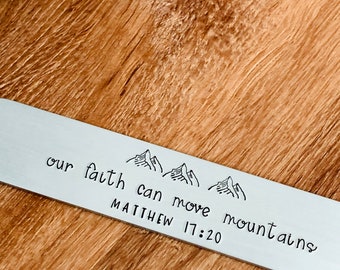 our faith can move mountains
MATTHEW 17:20